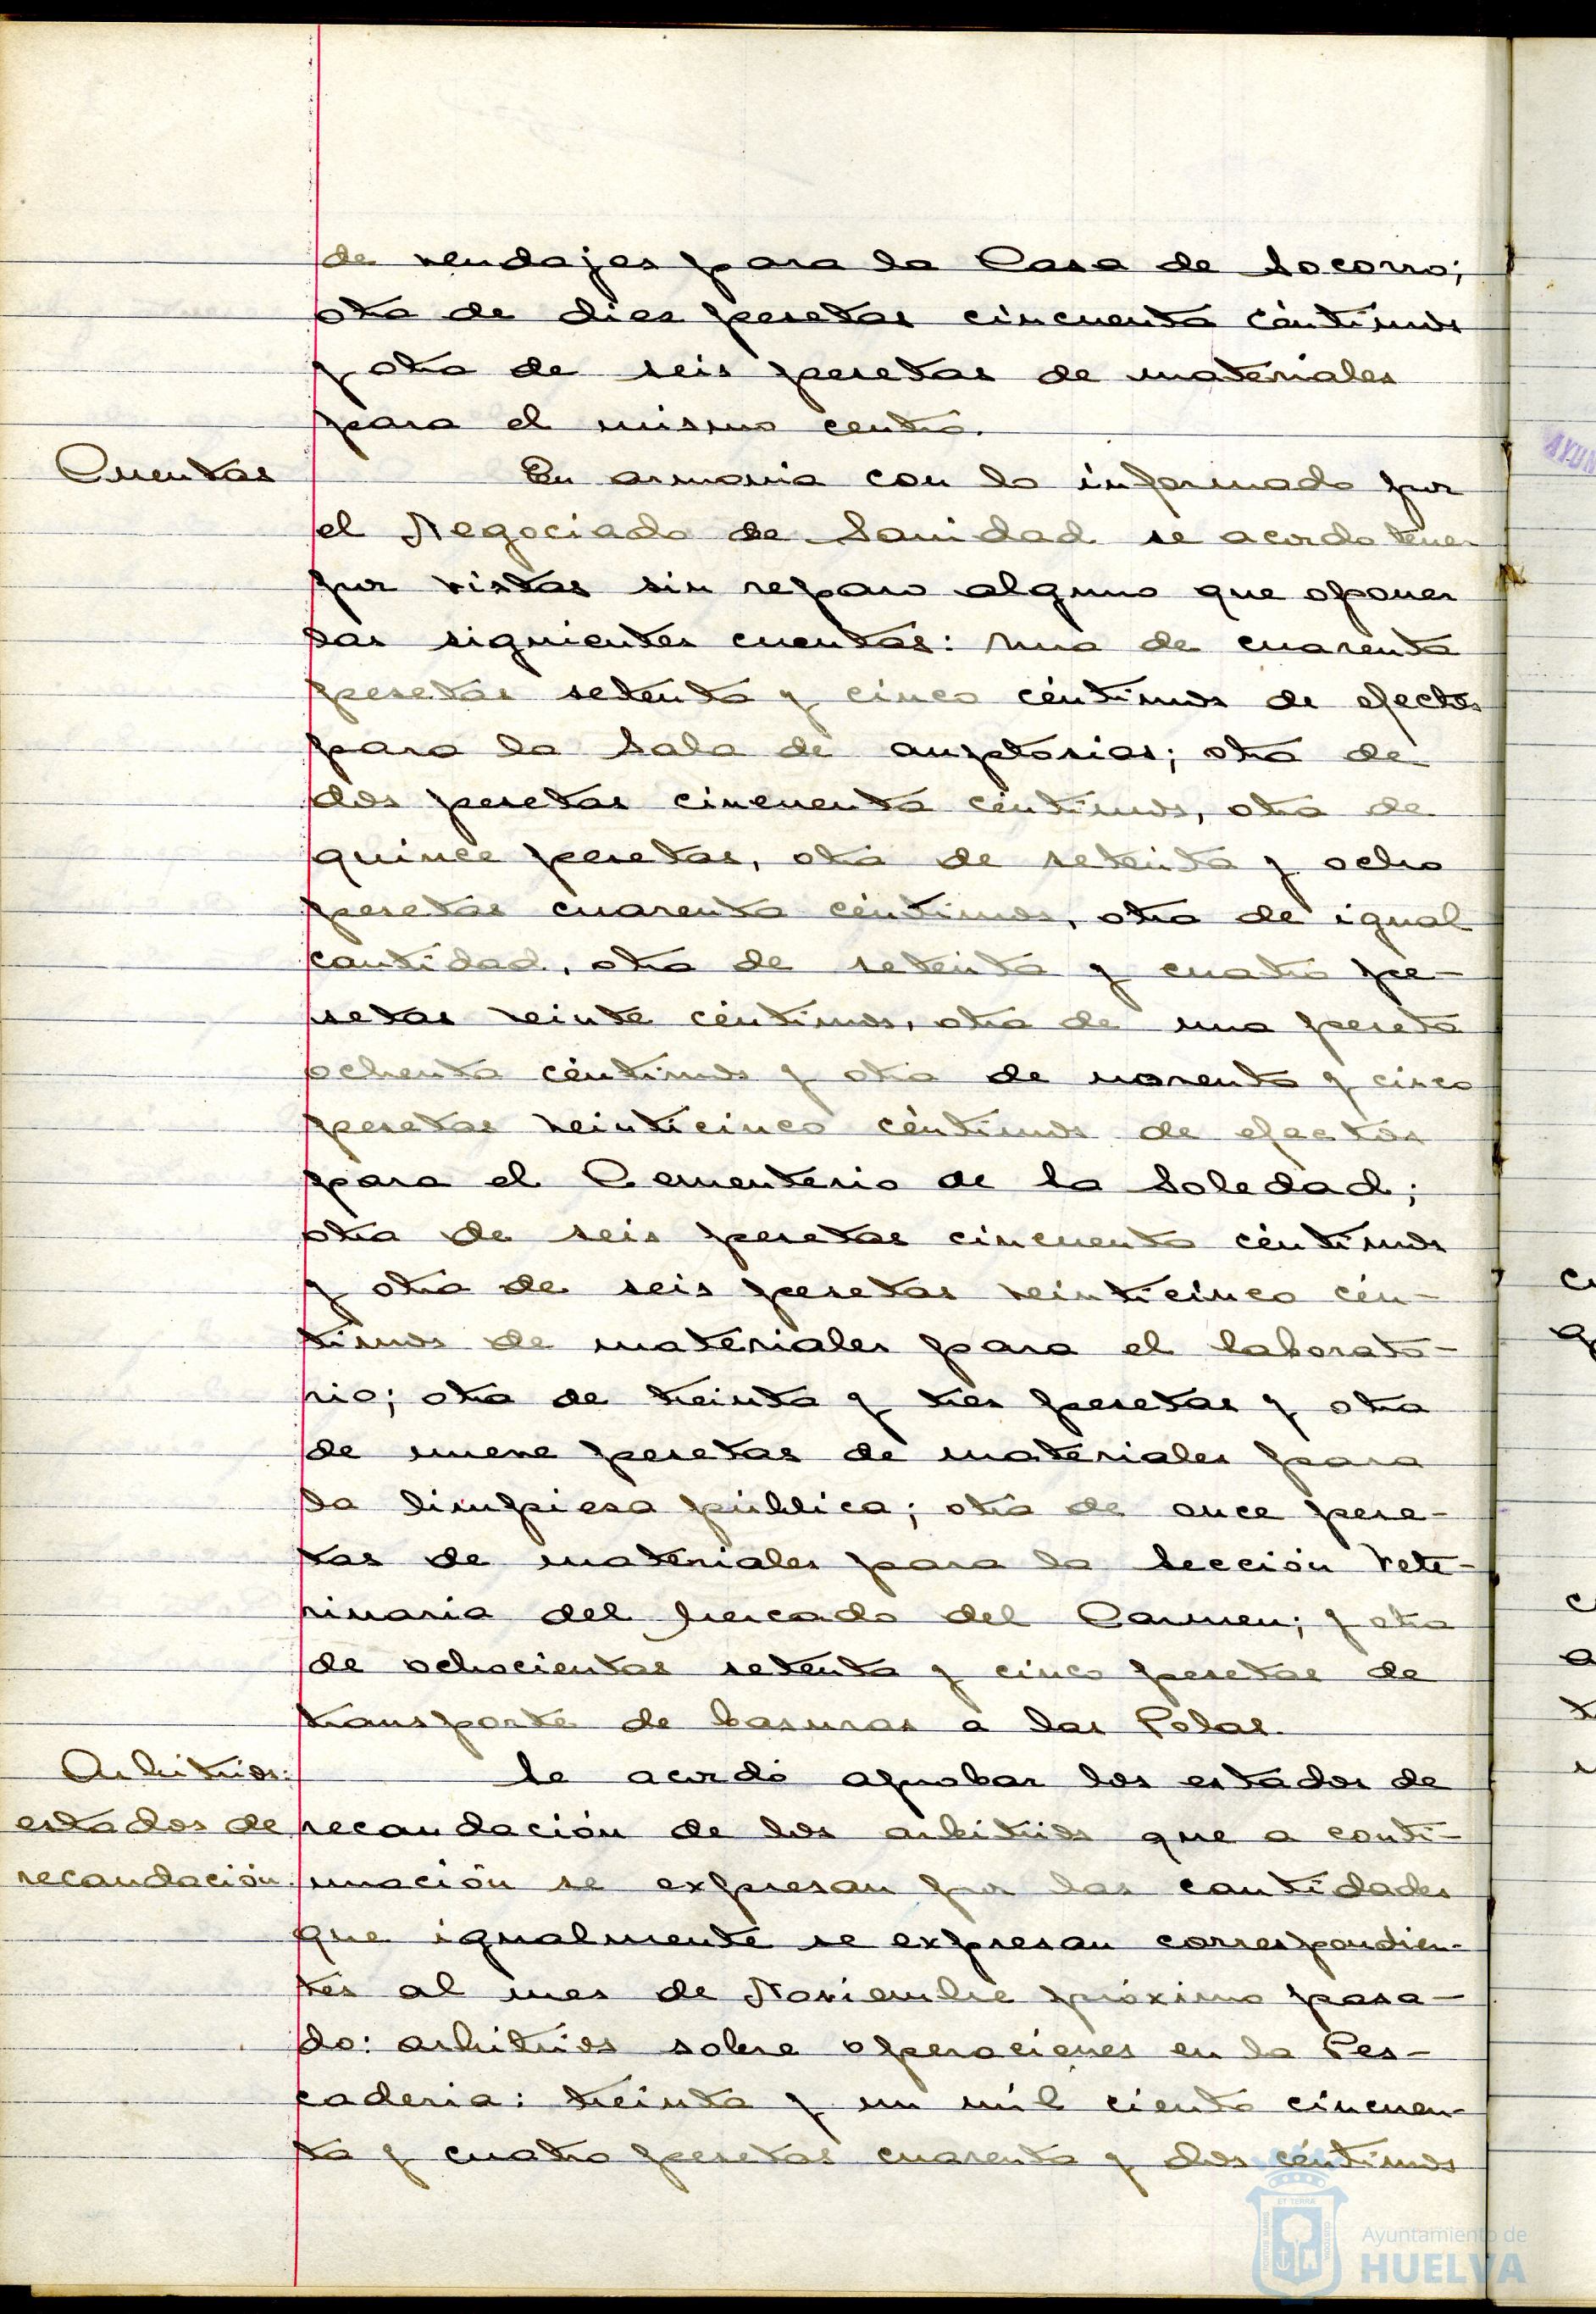 de vendajes para la Casa de Socorro;
otra de diez pesetas cincuenta céntimos
y otra de seis pesetas de materiales
para el mismo centro.
Cuentas
En armonia con lo informado por
el Negociado de Sanidad se acordo tener
por vistas sin reparo alguno que oponer
las siguientes cuentas: una de cuarenta
pesetas setenta y cinco céntimos de efectos
para la Sala de auptosias; otra de
dos pesetas cincuenta céntimos, otra de
quince pesetas, otra de setenta y ocho
pesetas cuarenta céntimos, otra de igual
cantidad, otra de setenta y cuatro pe-
setas veinte céntimos, otra de una peseta
ochenta céntimos y otra de noventa y cinco
pesetas veinticinco céntimos de efectos
para el Cementerio de la Soledad;
otra de seis pesetas cincuenta céntimos
y otra de seis pesetas veinticinco cén-
timos de materiales para el laborato-
rio; otra de treinta y tres pesetas y otra
de nueve pesetas de materiales para
la limpieza pública; otra de once pese-
tas de materiales para la Sección Vete-
rinaria del Mercado del Carmen; y otra
de ochocientas setenta y cinco pesetas de
transporte de basuras a las Polas.
Arbitrios:
estados de
recaudación.
Se acordó aprobar los estados de
recaudación de los arbitrios que a conti-
nuación se expresan por las cantidades
que igualmente se expresan correspondien-
tes al mes de Noviembre próximo pasa-
do: arbitrios sobre operaciones en la Pes-
caderia: treinta y un mil ciento cincuen-
ta y cuatro pesetas cuarenta y dos céntimos
Ayuntamiento de
HUELVA